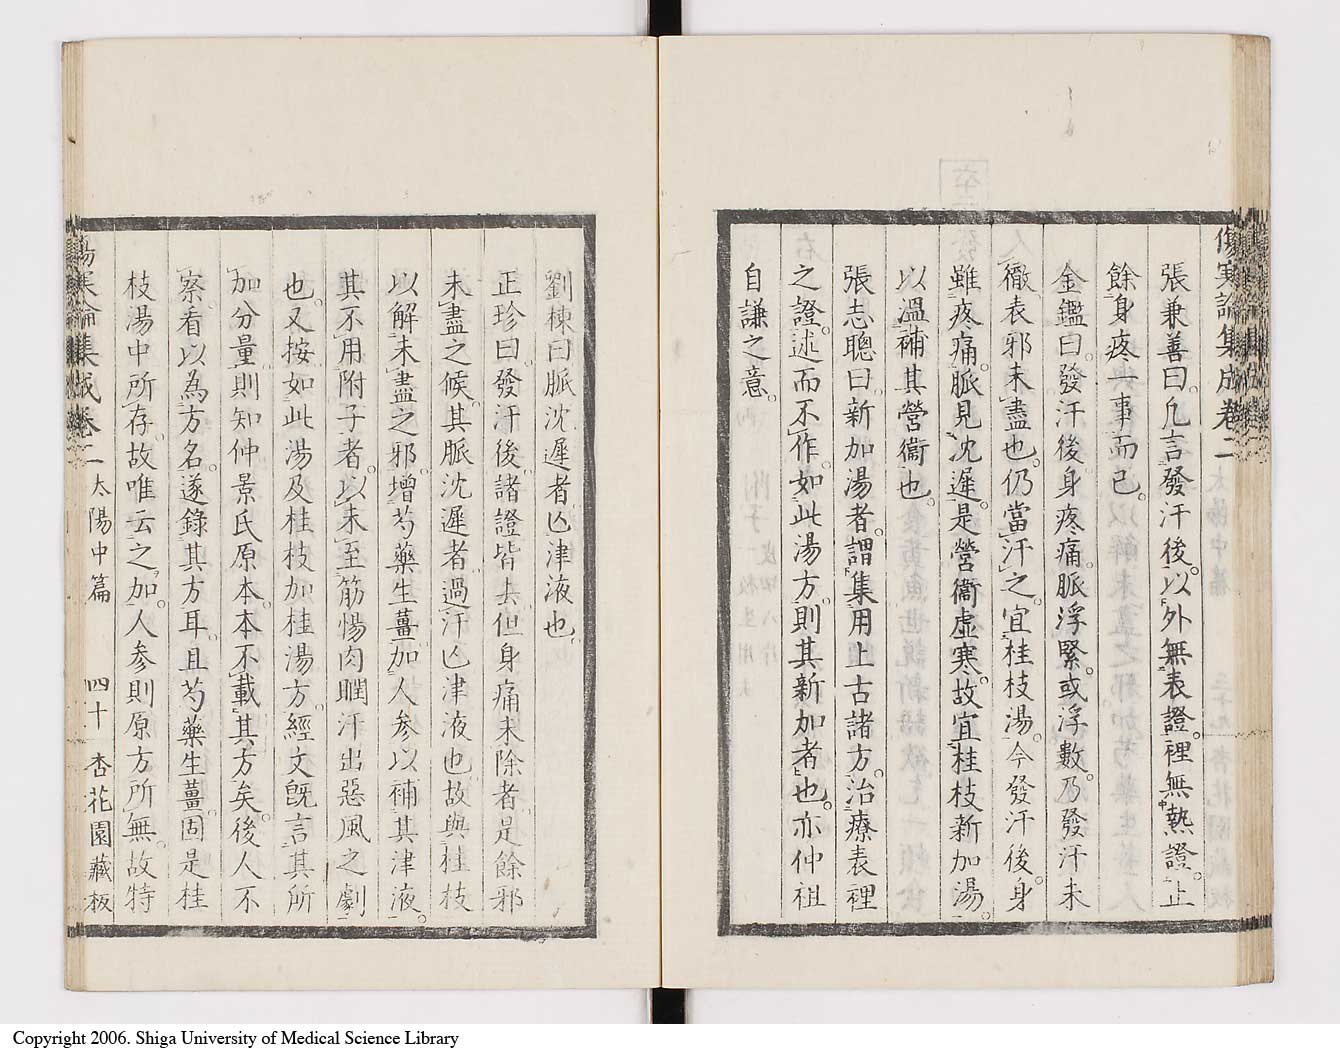 傷寒論集成卷二
張兼善曰。凡言發汗後。以外無表證。裡無熱證。止
餘身疼一事而已。
金鑑曰。發汗後身疼痛。脈浮緊。或浮數。乃發汗未
徹。表邪未盡也。仍當汗之。宜桂枝湯。今發汗後。身
雖疼痛。脈見沈遲。是營衞虛寒。故宜桂枝新加湯。
以溫補其營衞也。
張志聰曰。新加湯者。謂集用上古諸方。治療表裡
之證。述而不作。如此湯方。則其新加者也。亦仲祖
自謙之意。
劉棟曰。脈沈遲者。亾津液也。
正珍曰。發汗後。諸證皆去。但身痛未除者。是餘邪
未盡之候。其脈沈遲者。過汗亾津液也。故與桂枝
以解未盡之邪。增芍藥生薑。加人參。以補其津液。
其不用附子者。以未至筋惕肉瞤汗出惡風之劇
也。又按如此湯及桂枝加桂湯方。經文既言其所
加分量。則知仲景氏原本。本不載其方矣。後人不
察。看以為方名。遂錄其方耳。且芍藥生薑。固是桂
枝湯中所存。故唯云之加。人參則原方所無。故特
傷寒論集成卷二 太陽中篇 四十 杏花園藏板
Copyright 2006. Shiga University of Medical Science Library